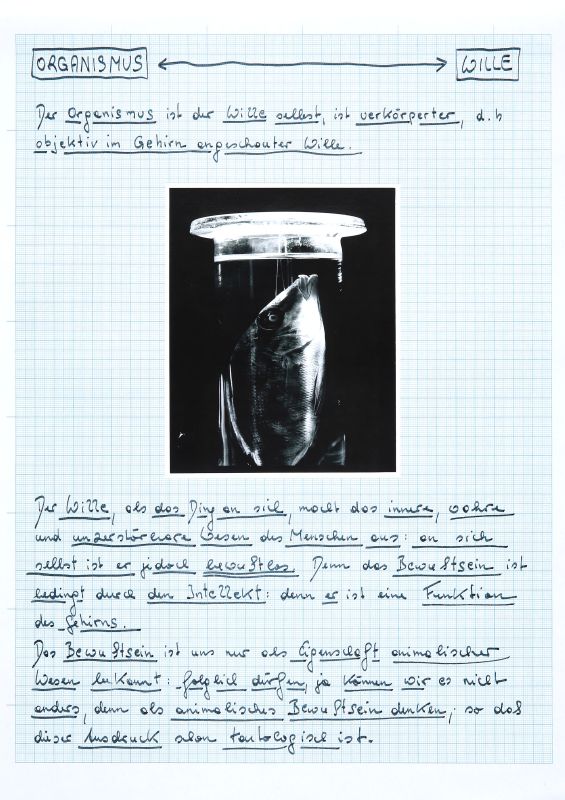 ORGANISMUS WILLE
Der Organismus ist der Wille selbst, ist verkörperter, d.h
objektiv im Gehirn angeschauter Wille.
Der Wille, als das Ding an sich, macht das innere, wahre
und unzerstörbare Wesen des Menschen aus: an sich
selbst ist er jedoch bewußtlos. Denn das Bewußtsein ist
bedingt durch den Intellekt: denn er ist eine Funktion
des Gehirns.
Das Bewußtsein ist uns nur als Eigenschaft animalischer
Wesen bekannt: folglich dürfen, ja können wir es nicht
anders, denn als animalisches Bewußtsein denken; so daß
dieser Ausdruck schon tautologisch ist.